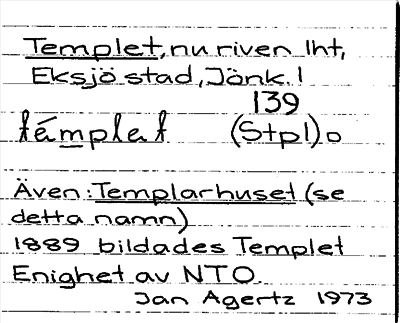 Templet, nu riven lht,
Eksjö stad, Jönk. l
139
támplet (Stpl)o
Även: Templarhuset (se
detta namn)
1889 bildades Templet
Enighet av NTO.
Jan Agertz 1973